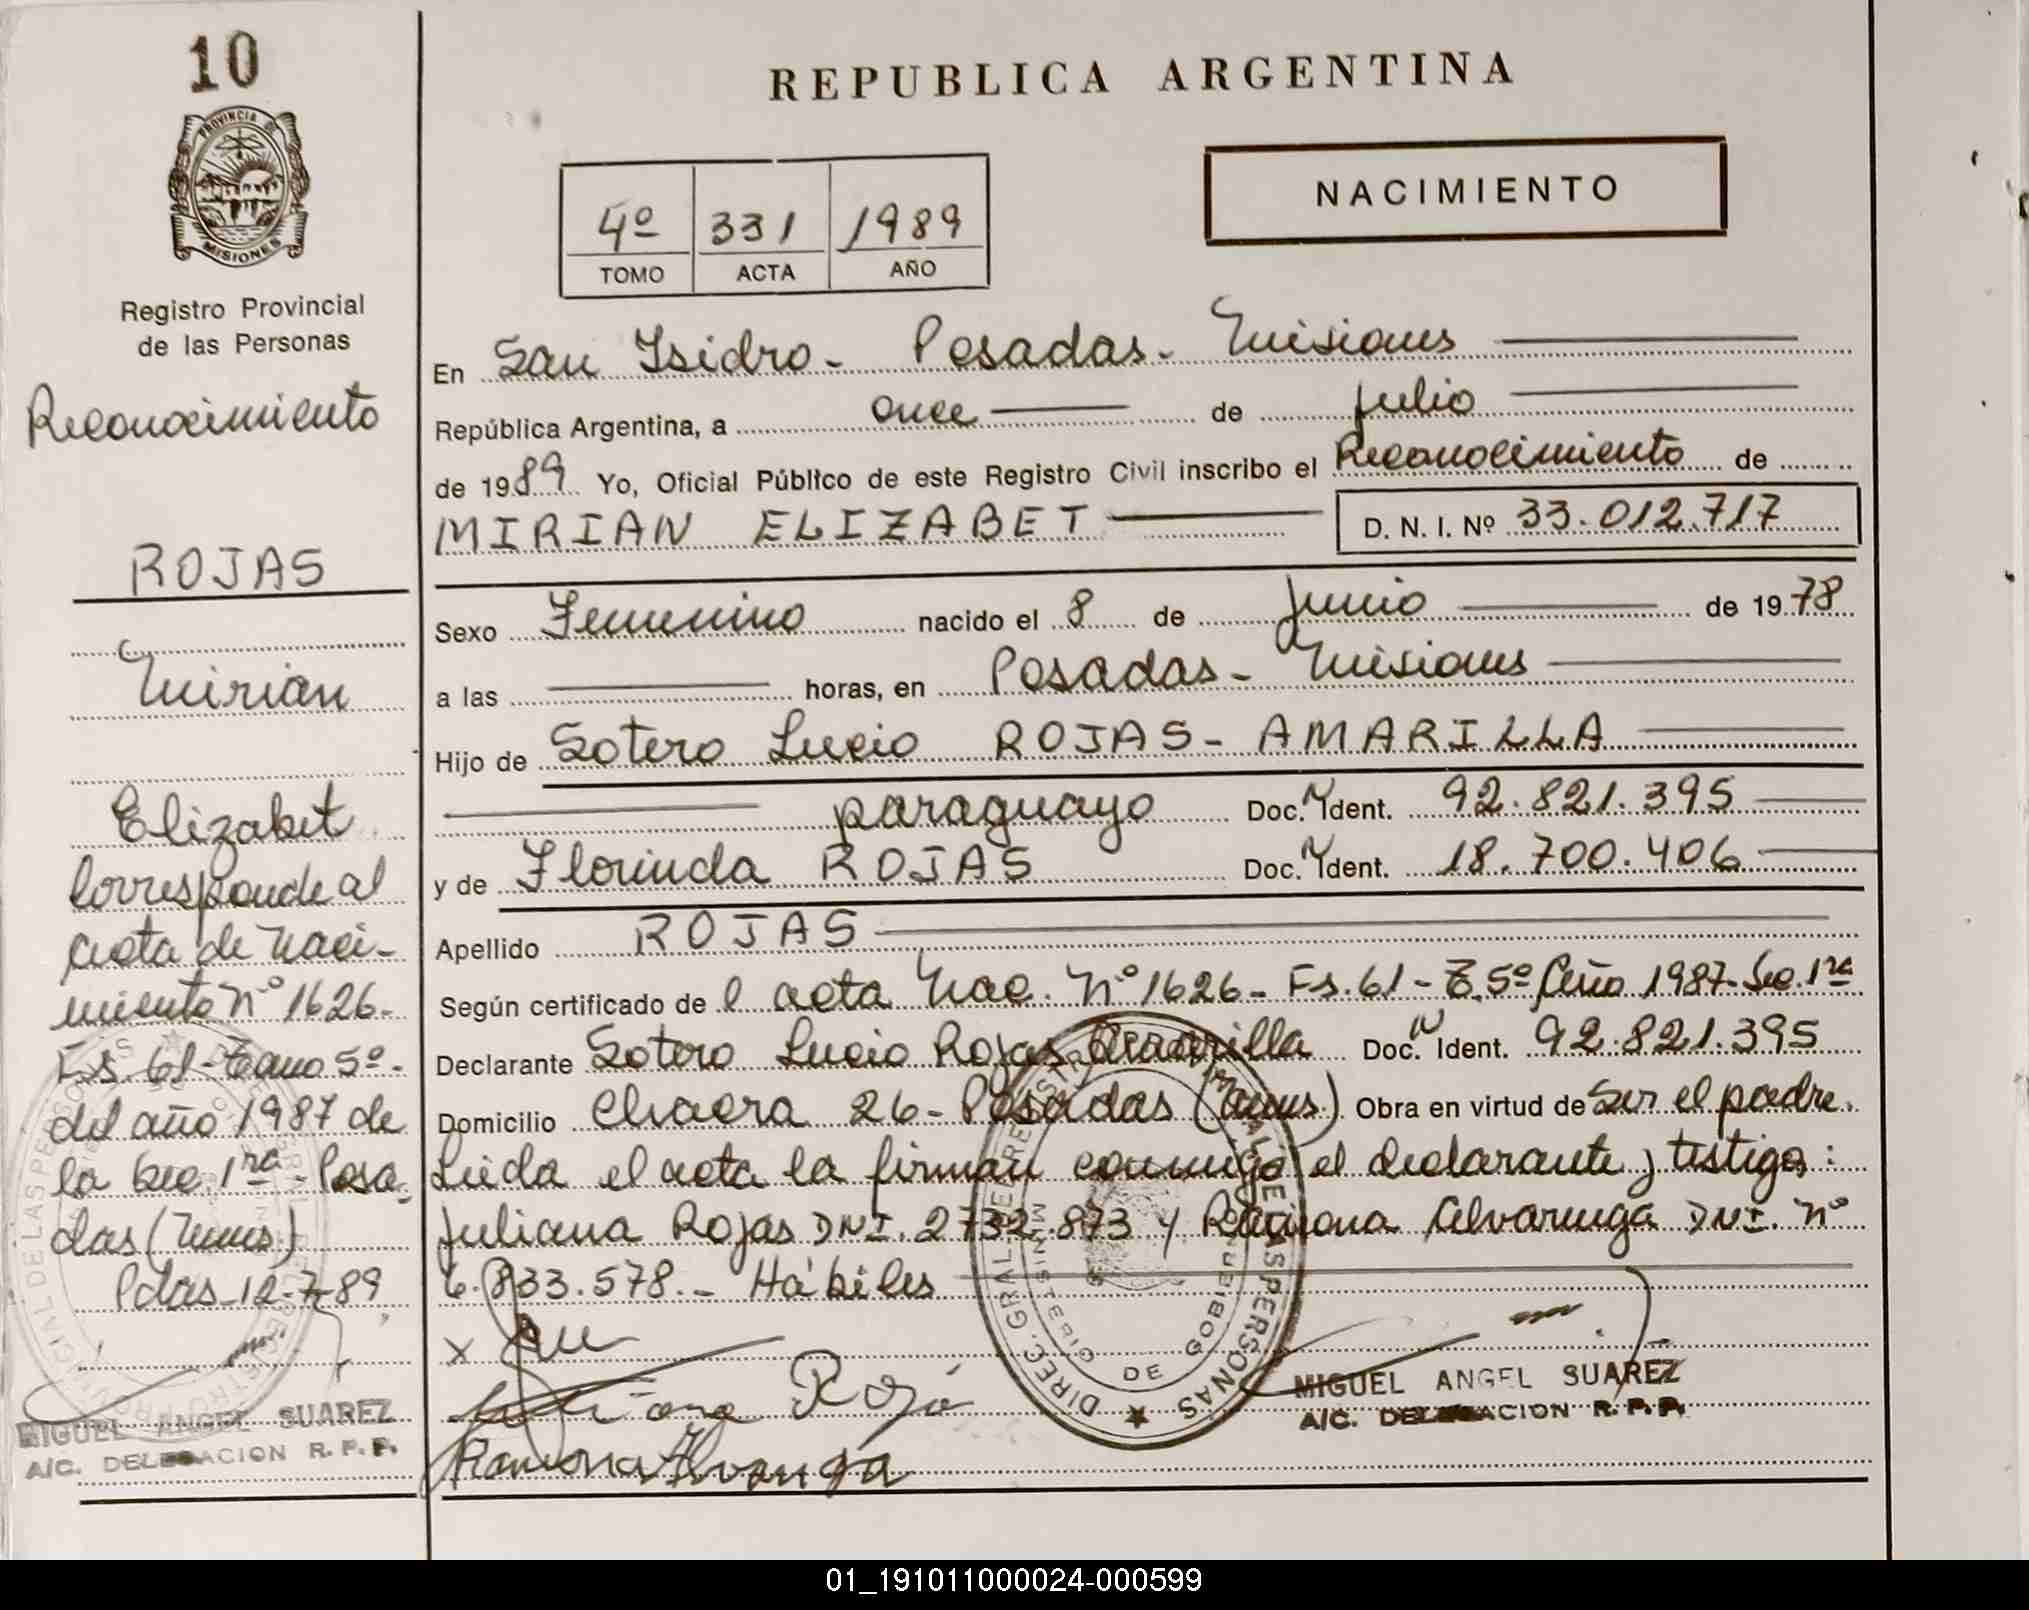 10
PROVINCIA DE
MISIONES
Registro Provincial
de las Personas
Reconocimiento
ROJAS
Mirian
Elizabet
Corresponde al
acta de naci-
miento nº 1626-
Fs. 61- Tomo 5º-
del año 1987 de
la Sec. 1ra - Posa-
das (Mnes.)
Pdas-12-7-89
MIGUEL ANGEL SUAREZ
A/C. DELEGACION R. P. P.
REPUBLICA ARGENTINA
NACIMIENTO
4º 331 1989
TOMO ACTA AÑO
En San Isidro - Posadas - Misiones
República Argentina, a once de julio
de 1989 Yo, Oficial Público de este Registro Civil inscribo el Reconocimiento de
MIRIAN ELIZABET D. N. I. Nº 33.012.717
Sexo Femenino nacido el 8 de Junio de 1978
a las horas, en Posadas - Misiones
Hijo de Sotero Lucio ROJAS - AMARILLA
paraguayo Doc. Ident. 92.821.395
y de Florinda ROJAS Doc. Ident. 18.700.406
Apellido ROJAS
Según certificado de l acta Nac. Nº 1626- Fs. 61- T. 5º Año 1987- Sec. 1ra
Declarante Sotero Lucio Rojas Amarilla Doc. Ident. 92.821.395
Domicilio Chacra 26- Posadas (Mnes) Obra en virtud de Ser el padre.
Leida el acta la firman conmigo el declarante y testigos:
Juliana Rojas DNI. 2732.873 y Ramona Alvarenga DNI. Nº
6.833.578.- Hábiles
x
Juliana Roja
Ramona Alvarenga
DIREC. GRAL. DE REGISTRO PROVINCIAL DE LAS PERSONAS
MINISTERIO DE GOBIERNO
MIGUEL ANGEL SUAREZ
A/C. DELEGACION R. P. P.
01_191011000024-000599